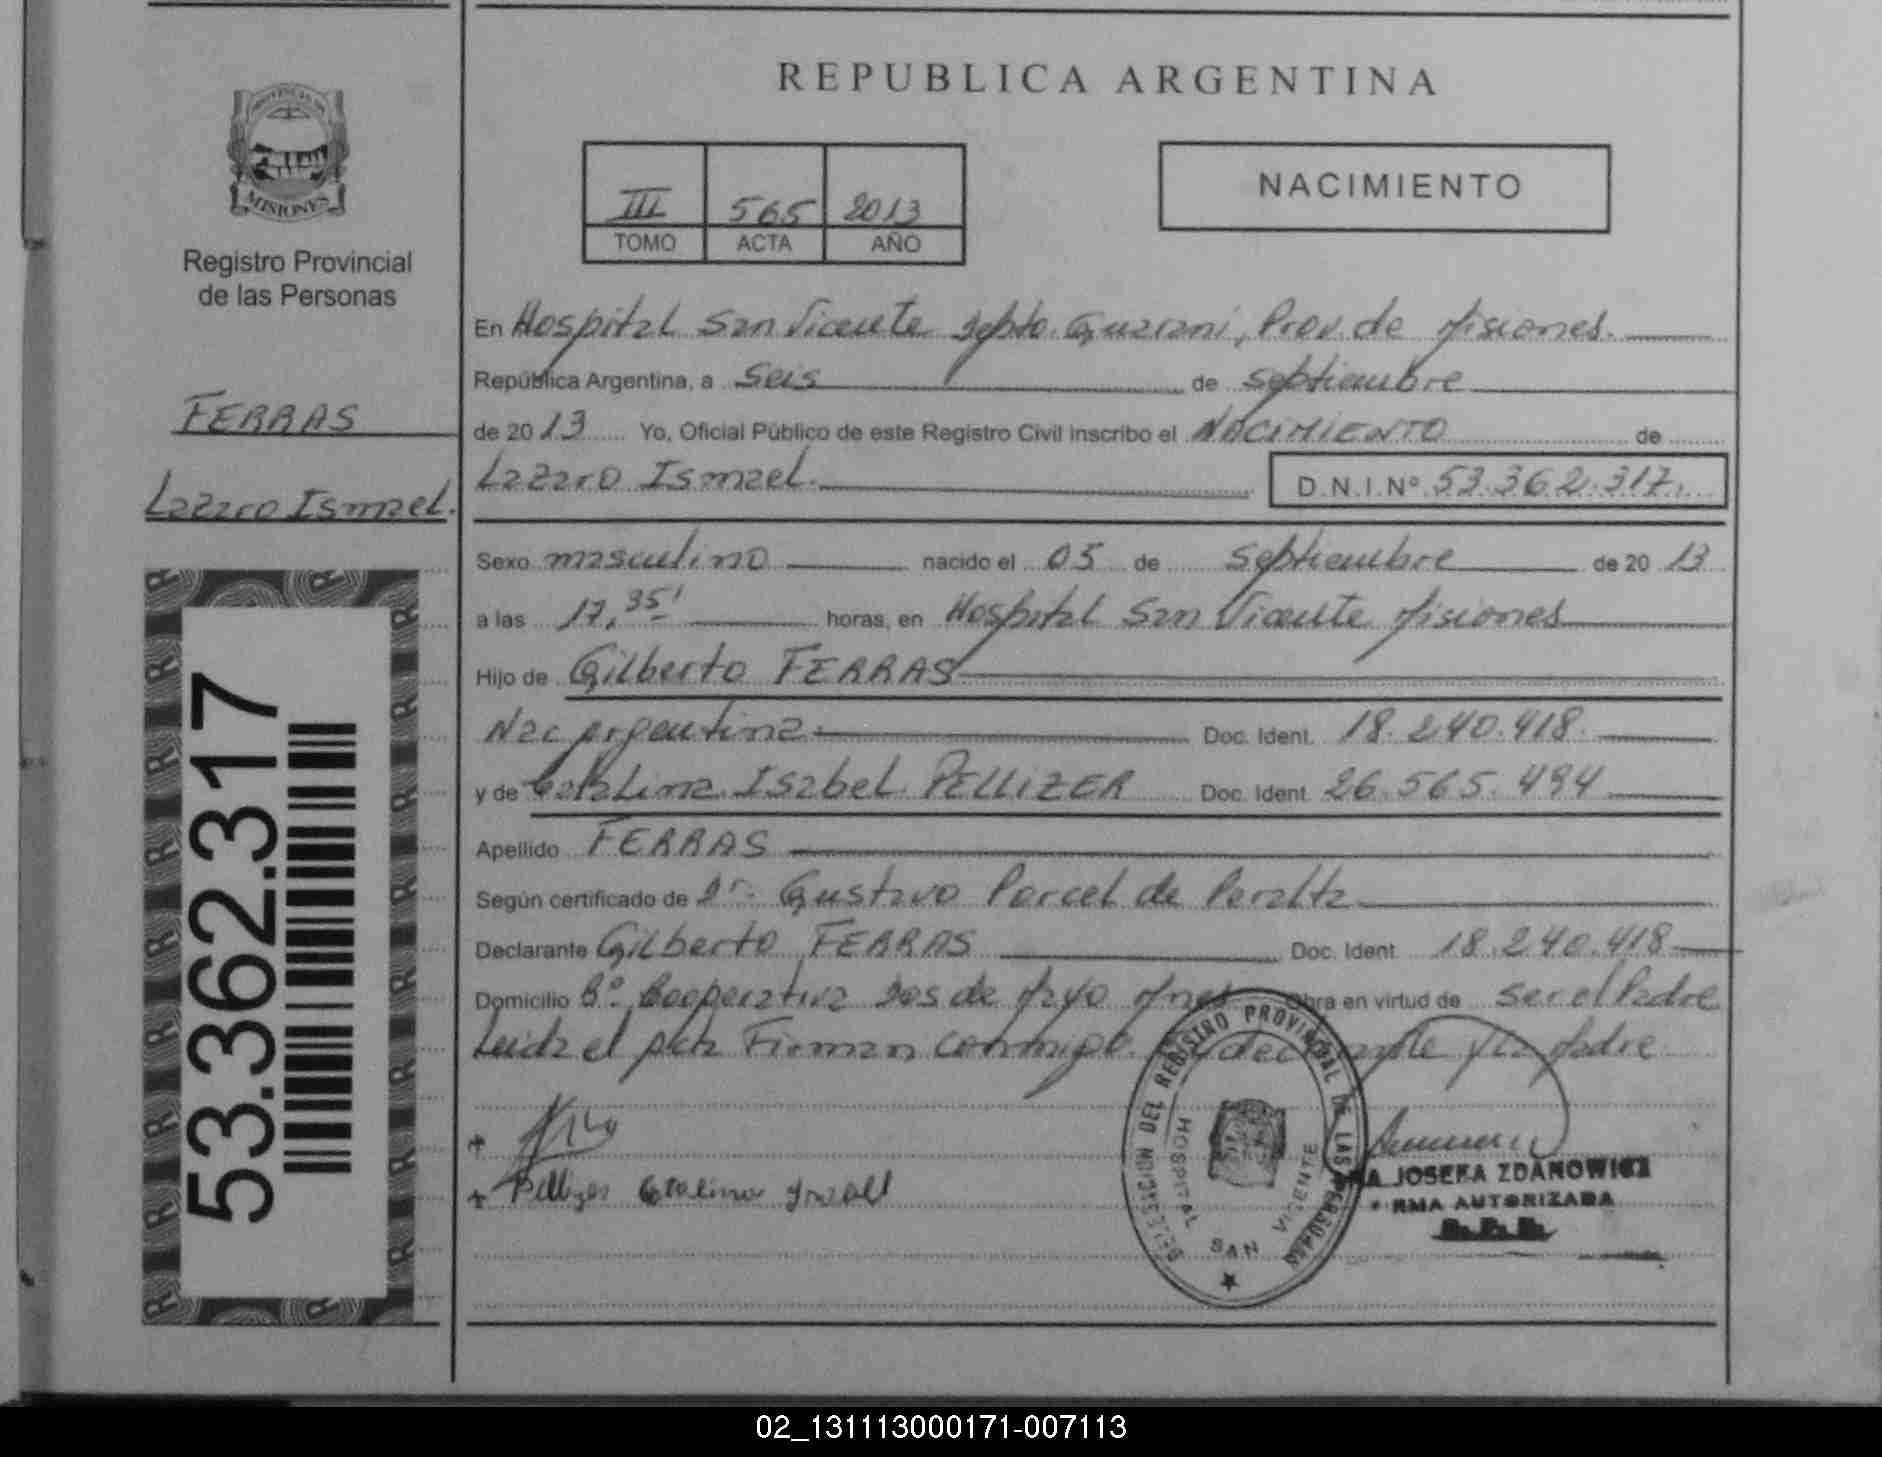 REPUBLICA ARGENTINA
PROVINCIA DE
MISIONES
Registro Provincial
de las Personas
III 565 2013
TOMO ACTA AÑO
NACIMIENTO
FERRAS
Lazaro Ismael.
53.362.317
En Hospital San Vicente Depto. Guarani, Prov. de Misiones.
República Argentina, a Seis de Septiembre
de 2013 Yo, Oficial Público de este Registro Civil inscribo el NACIMIENTO de
Lazaro Ismael. D.N.I.Nº 53.362.317.
Sexo masculino nacido el 05 de Septiembre de 2013
a las 17,35' horas, en Hospital San Vicente Misiones
Hijo de Gilberto FERRAS
Nac Argentina Doc. Ident. 18.240.418.
y de Catalina Isabel PELLIZER Doc. Ident. 26.565.494
Apellido FERRAS
Según certificado de Dr. Gustavo Porcel de Peralta
Declarante Gilberto FERRAS Doc. Ident. 18.240.418
Domicilio Bº Cooperativa Dos de Mayo Mnes Obra en virtud de ser el Padre
Leida el acta Firman conmigo declarante y la Madre
Pellizer Catalina Ysabel
DELEGACION DEL REGISTRO PROVINCIAL DE LAS PERSONAS
HOSPITAL SAN VICENTE
JOSEFA ZDANOWICZ
RMA AUTORIZADA
02_131113000171-007113